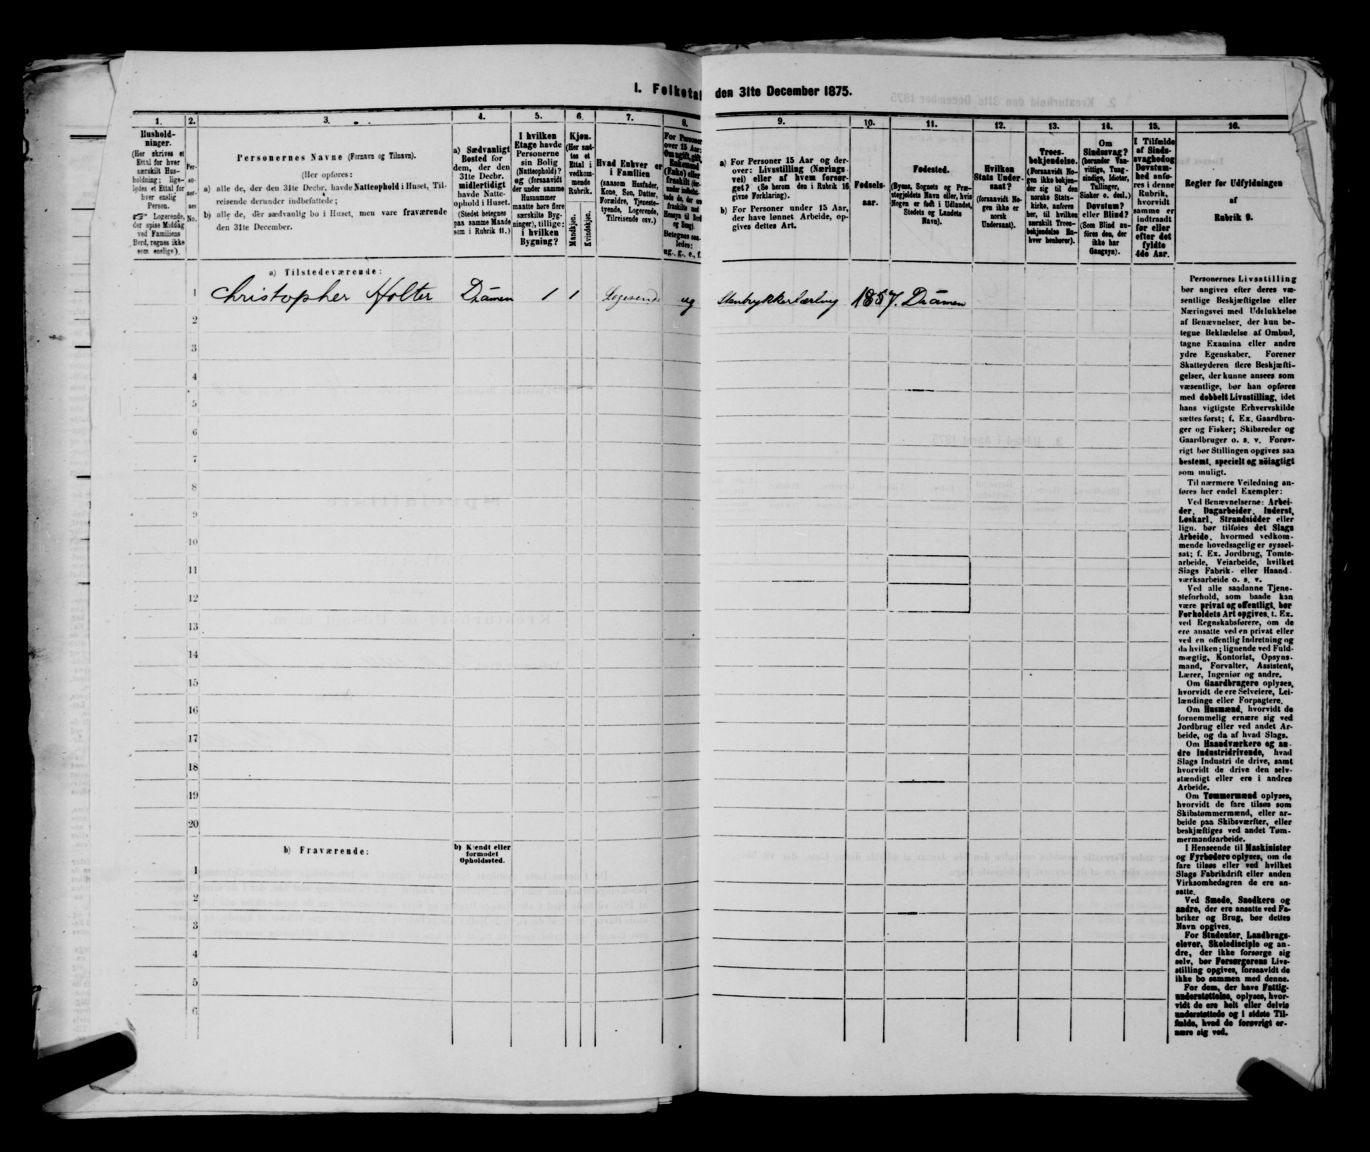 I. Folketal den 31te December 1875.
1.
2.
3.
4.
5.
6.
7.
8.
9.
10.
11.
12.
13.
14.
15.
16.
Hushold-
ninger.
(Her skrives et
Ettal for hver
særskilt Hus-
holdning; lige-
ledes et Ettal for
hver enslig
Person.
☞ Logerende,
der spise Middag
ved Familiens
Bord, regnes ikke
som enslige).
Per-
so-
ner-
nes
No.
Personernes Navne (Fornavn og Tilnavn).
(Her opføres:
a) alle de, der den 31te Decbr. havde Natteophold i Huset, Til-
reisende derunder indbefattede;
b) alle de, der sædvanlig bo i Huset, men vare fraværende
den 31te December.
a) Sædvanligt
Bosted for
dem, der den
31te Decbr.
midlertidigt
havde Natte-
ophold i Huset.
(Stedet betegnes
paa samme Maade
som i Rubrik 11.)
I hvilken
Etage havde
Personerne
sin Bolig
(Natteophold)?
og (forsaavidt
der under samme
Husnummer
maatte høre flere
særskilte Byg-
ninger), tillige:
i hvilken
Bygning?
Kjøn.
(Her sæt-
tes et
Ettal i
vedkom-
mende
Rubrik.
Mandkjøn.
Kvindekjøn.
Hvad Enhver er
i Familien
(saasom Husfader,
Kone, Søn, Datter,
Forældre, Tjeneste-
tyende, Logerende,
Tilreisende osv.).
For Personer
over 15 Aar:
Om ugift, gift,
Enkemand
(Enke) eller
fraskilt
Betegnes saa-
ledes:
ug., g., e., f.
a) For Personer 15 Aar og der-
over: Livsstilling (Nærings-
vei) eller af hvem forsør-
get? (Se herom den i Rubrik 16
givne Forklaring).
b) For Personer under 15 Aar,
der have lønnet Arbeide, op-
gives dettes Art.
Fødsels-
aar.
Fødested.
(Byens, Sognets og Præ-
stegjeldets Navn eller, hvis
Nogen er født i Udlandet,
Stedets og Landets
Navn).
Hvilken
Stats Under-
saat?
(forsaavidt No-
gen ikke er
norsk
Undersaat).
Troes-
bekjendelse.
(Forsaavidt No-
gen ikke bekjen-
der sig til den
norske Stats-
kirke, anføres
her, til hvilken
særskilt Troes-
bekjendelse En-
hver henhører).
Om
Sindssvag?
(herunder Van-
vittige, Tung-
sindige, Idioter,
Tullinger,
Sinker o. desl.)
Døvstum?
eller Blind?
(Som Blind an-
føres den, der
ikke har
Gangsyn).
I Tilfælde
af Sinds-
svaghedog
Døvstum-
hed anfø-
res i denne
Rubrik,
hvorvidt
samme er
indtraadt
før eller
efter det
fyldte
4de Aar.
Regler for Udfyldningen
af
Rubrik 9.
a) Tilstedeværende:
1 Christopher Holter Dramen 1 1 Logerende ug Stentrykkerlærling 1857. Dramen
2
3
4
5
6
7
8
9
10
11
12
13
14
15
16
17
18
19
20
b) Fraværende:
b) Kjendt eller
formodet
Opholdssted.
1
2
3
4
5
6
Personernes Livsstilling
bør angives efter deres væ-
sentlige Beskjæftigelse eller
Næringsvei med Udelukkelse
af Benævnelser, der kun be-
tegne Beklædelse af Ombud,
tagne Examina eller andre
ydre Egenskaber. Forener
Skatteyderen flere Beskjæfti-
gelser, der kunne ansees som
væsentlige, bør han opføres
med dobbelt Livsstilling, idet
hans vigtigste Erhvervskilde
sættes først; f. Ex. Gaardbru-
ger og Fisker; Skibsreder og
Gaardbruger o. s. v. Forøv-
rigt bør Stillingen opgives saa
bestemt, specielt og nøiagtigt
som muligt.
Til nærmere Veiledning an-
føres her endel Exempler:
Ved Benævnelserne: Arbei-
der, Dagarbeider, Inderst,
Løskarl, Strandsidder eller
lign. bør tilføies det Slags
Arbeide, hvormed vedkom-
mende hovedsagelig er syssel-
sat; f. Ex. Jordbrug, Tomte-
arbeide, Veiarbeide, hvilket
Slags Fabrik- eller Haand-
værksarbeide o. s. v.
Ved alle saadanne Tjene-
steforhold, som baade kan
være privat og offentligt, bør
Forholdets Art opgives, t. Ex.
ved Regnskabsførere, om de
ere ansatte ved en privat eller
ved en offentlig Indretning og
da hvilken; lignende ved Fuld-
mægtig, Kontorist, Opsyns-
mand, Forvalter, Assistent,
Lærer, Ingeniør og andre.
Om Gaardbrugere oplyses,
hvorvidt de ere Selveiere, Lei-
lændinge eller Forpagtere.
Om Husmænd, hvorvidt de
fornemmelig ernære sig ved
Jordbrug eller ved andet Ar-
beide, og da af hvad Slags.
Om Haandværkere og an-
dre Industridrivende, hvad
Slags Industri de drive, samt
hvorvidt de drive den selv-
stændigt eller ere i andres
Arbeide.
Om Tømmermænd oplyses,
hvorvidt de fare tilsøs som
Skibstømmermænd, eller ar-
beide paa Skibsværfter, eller
beskjæftiges ved andet Tøm-
mermandsarbeide.
I Henseende til Maskinister
og Fyrbødere oplyses, om de
fare tilsøs eller ved hvilket
Slags Fabrikdrift eller anden
Virksomhedsgren de ere an-
satte.
Ved Smede, Snedkere og
andre, der ere ansatte ved Fa-
briker og Brug, bør dettes
Navn opgives.
For Studenter, Landbrugs-
elever, Skoledisciple og an-
dre, der ikke forsørge sig
selv, bør Forsørgerens Livs-
stilling opgives, forsaavidt de
ikke bo sammen med denne.
For dem, der have Fattig-
understøttelse, oplyses, hvor-
vidt de ere helt eller delvis
understøttede og i sidste Til-
fælde, hvad de forøvrigt er-
nære sig ved.